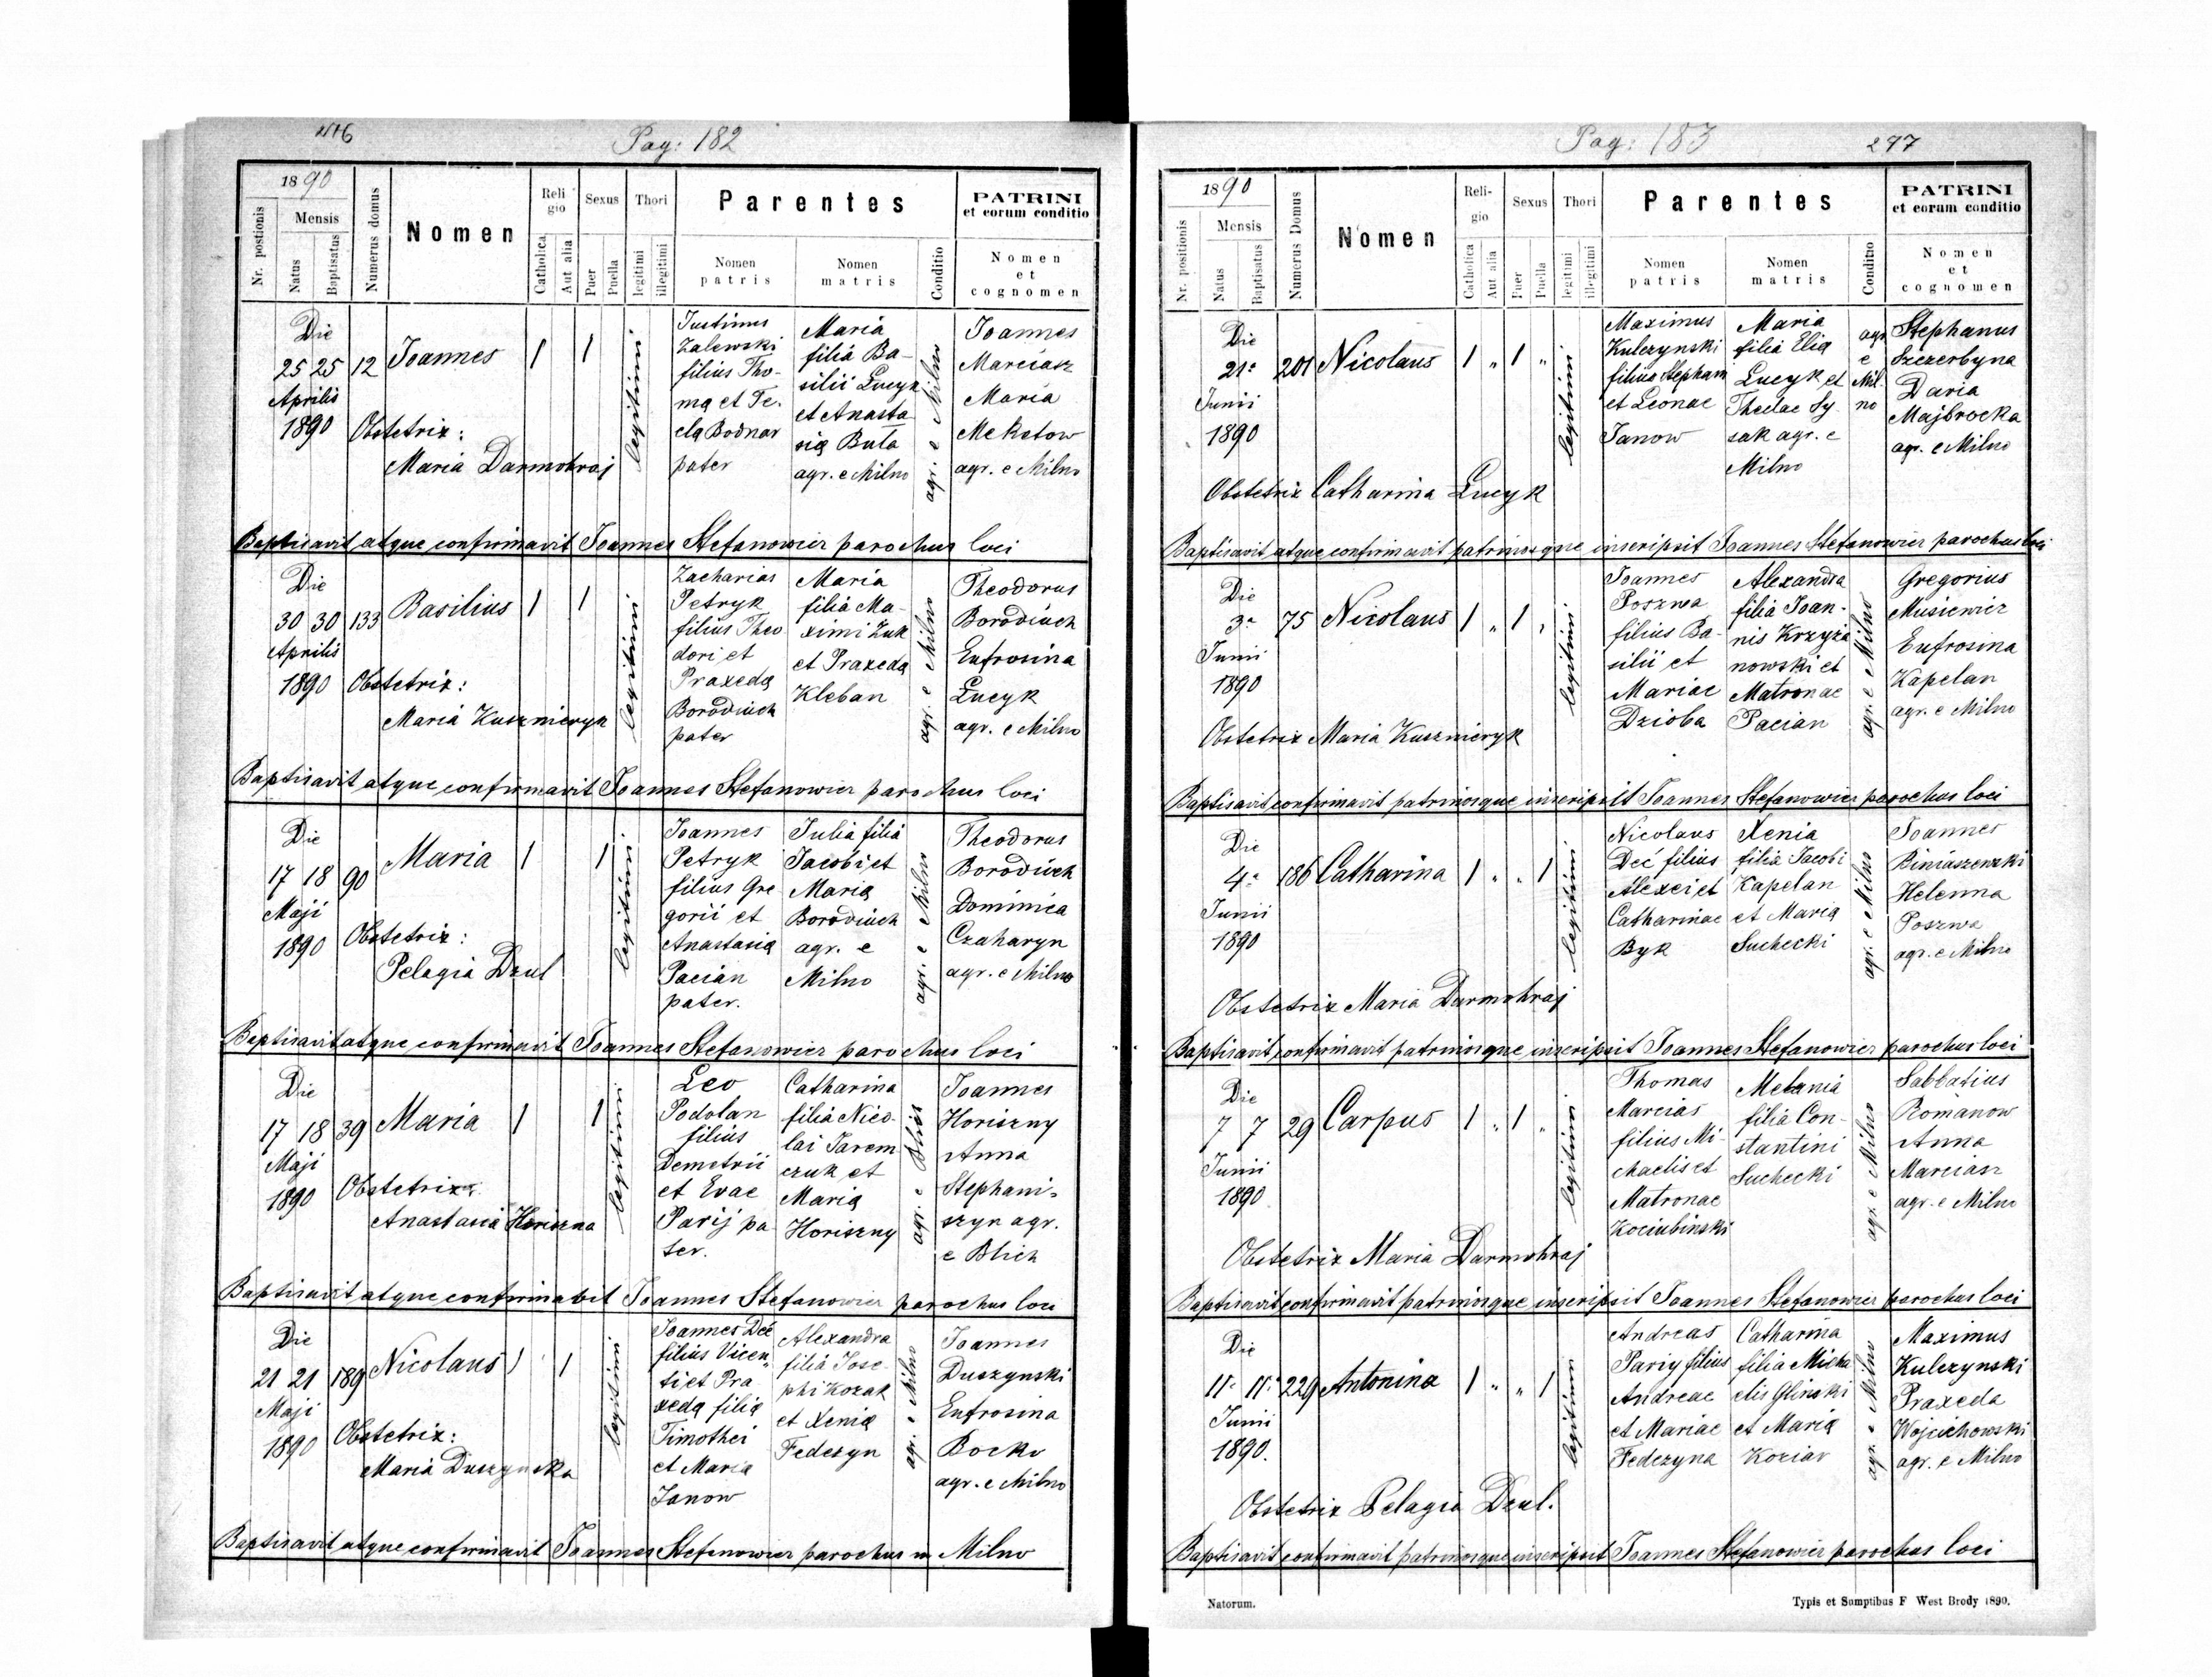 Pag: 182
1890
Nr. postionis
Mensis
Natus
Baptisatus
Numerus domus
Nomen
Religio
Catholica
Aut alia
Sexus
Puer
Puella
Thori
legitimi
illegitimi
Parentes
Nomen patris
Nomen matris
Conditio
PATRINI
et eorum conditio
Nomen
et
cognomen
Die
25 25 12 Joannes 1 1
Aprilis
1890 Obstetrix:
Maria Darmohraj
legitimi
Justinus
Zalewski
filius Tho-
mą et Te-
clą Bodnar
pater
Maria
filia Ba-
silii Lucyk
et Anasta
sią Buła
agr. e Milno
agr. e Milno
Joannes
Marciasz
Maria
Meketow
agr. e Milno
Baptisavit atque confirmavit Joannes Stefanowicz parochus loci
Die
30 30 133 Basilius 1 1
Aprilis
1890 Obstetrix:
Maria Kusznieryk
legitimi
Zacharias
Petryk
filius Theo
dori et
Praxedą
Borodiuch
pater
Maria
filia Ma-
ximi Żuk
et Praxedą
Kleban
agr. e Milno
Theodorus
Borodiuch
Eufrosina
Lucyk
agr. e Milno
Baptisavit atque confirmavit Joannes Stefanowicz parochus loci
Die
17 18 90 Maria 1 1
Maji
1890 Obstetrix:
Pelagia Dzul
legitimi
Joannes
Petryk
filius Gre
gorii et
Anastasią
Pacian
pater.
Julia filia
Jacobi et
Marią
Borodiuch
agr. e
Milno
agr. e Milno
Theodorus
Borodiuch
Dominica
Czaharyn
agr. e Milno
Baptisavit atque confirmavit Joannes Stefanowicz parochus loci
Die
17 18 39 Maria 1 1
Maji
1890 Obstetrix:
Anastasia Horiszna
legitimi
Leo
Podolan
filius
Demetrii
et Evae
Parij pa
ter.
Catharina
filia Nico-
lai Jarem
czuk et
Marią
Horiszny
agr. e Blich
Joannes
Horiszny
Anna
Stephani-
szyn agr.
e Blich
Baptisavit atque confirmabit Joannes Stefanowicz parochus loci
Die
21 21 189 Nicolaus 1 1
Maji
1890 Obstetrix:
Maria Duszynska
legitimi
Joannes Deć
filius Vicen-
ti et Pra
xedą filią
Timothei
et Marią
Janow
Alexandra
filia Jose-
phi Kozak
et Xenią
Fedczyn
agr. e Milno
Joannes
Duszynski
Eufrosina
Bocko
agr. e Milno
Baptisavit atque confirmavit Joannes Stefanowicz parochus in Milno
Pag: 183 297
1890
Nr. positionis
Mensis
Natus
Baptisatus
Numerus Domus
Nomen
Reli-
gio
Catholica
Aut alia
Sexus
Puer
Puella
Thori
legitimi
illegitimi
Parentes
Nomen patris
Nomen matris
Conditio
PATRINI
et eorum conditio
Nomen
et
cognomen
Die
21a 201 Nicolaus 1 " 1 "
Junii
1890
legitimi
Maximus
Kulczynski
filius Stephani
et Leonae
Janow
Maria
filia Elią
Lucyk et
Theclae Sy-
sak agr. e
Milno
agr
e
Mil-
no
Stephanus
Szczerbyna
Daria
Majbrocka
agr. e Milno
Obstetrix Catharina Lucyk
Baptisavit atque confirmavit patrinosque inscripsit Joannes Stefanowicz parochus loci
Die
3a 75 Nicolaus 1 " 1 "
Junii
1890
legitimi
Joannes
Poszwa
filius Ba-
silii et
Mariae
Dzioba
Alexandra
filia Joan-
nis Krzyża
nowski et
Matronae
Pacian
agr. e Milno
Gregorius
Musiewicz
Eufrosina
Kapelan
agr. e Milno
Obstetrix Maria Kusznieryk
Baptisavit confirmavit patrinosque inscripsit Joannes Stefanowicz parochus loci
Die
4a 186 Catharina 1 " " 1
Junii
1890
legitimi
Nicolaus
Deć filius
Alexei et
Catharinae
Byk
Xenia
filia Jacobi
Kapelan
et Marią
Suchecki
agr. e Milno
Joannes
Biniaszewski
Helenna
Poszwa
agr. e Milno
Obstetrix Maria Darmohraj
Baptisavit confirmavit patrinosque inscripsit Joannes Stefanowicz parochus loci
Die
7 7 29 Carpus 1 " 1 "
Junii
1890
legitimi
Thomas
Marcias
filius Mi-
chaelis et
Matronae
Kociubinski
Melania
filia Con-
stantini
Suchecki
agr. e Milno
Sabbatius
Romanow
Anna
Marciasz
agr. e Milno
Obstetrix Maria Darmohraj
Baptisavit confirmavit patrinosque inscripsit Joannes Stefanowicz parochus loci
Die
11. 11. 229 Antonina 1 " " 1
Junii
1890.
legitimi
Andreas
Pariy filius
Andreae
et Mariae
Fedczyna
Catharina
filia Micha
elis Glinski
et Marią
Koziar
agr. e Milno
Maximus
Kulczynski
Praxeda
Wojciechowski
agr. e Milno
Obstetrix Pelagia Dzul.
Baptisavit confirmavit patrinosque inscripsit Joannes Stefanowicz parochus loci
Natorum.
Typis et Sumptibus F West Brody 1890.